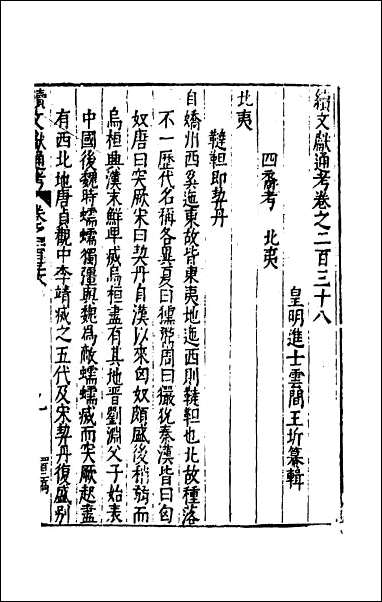 續文獻通考卷之二百三十八
皇明進士雲間王圻纂輯
四裔考 北夷
北夷
韃靼即契丹
自嬌州西奚迤東故皆東夷地迤西則韃靼也北故種落
不一歷代名稱各異夏曰獯鬻周曰玁狁秦漢皆曰匈
奴唐曰突厥宋曰契丹自漢以來匈奴頗盛後稍弱而
烏桓興漢末鮮卑滅烏桓盡有其地晉劉淵父子始表
中國後魏時蠕蠕獨彊與魏為敵蠕蠕滅而突厥起盡
有西北地唐貞觀中李靖滅之五代及宋契丹復盛別
續文獻通考